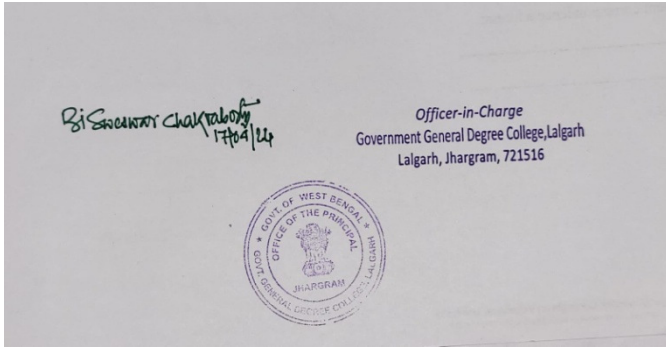 Bisweswar Chakraborty
17/04/24
Officer-in-Charge
Government General Degree College,Lalgarh
Lalgarh, Jhargram, 721516
★ GOVT. OF WEST BENGAL ★
OFFICE OF THE PRINCIPAL
JHARGRAM
GOVT. GENERAL DEGREE COLLEGE, LALGARH